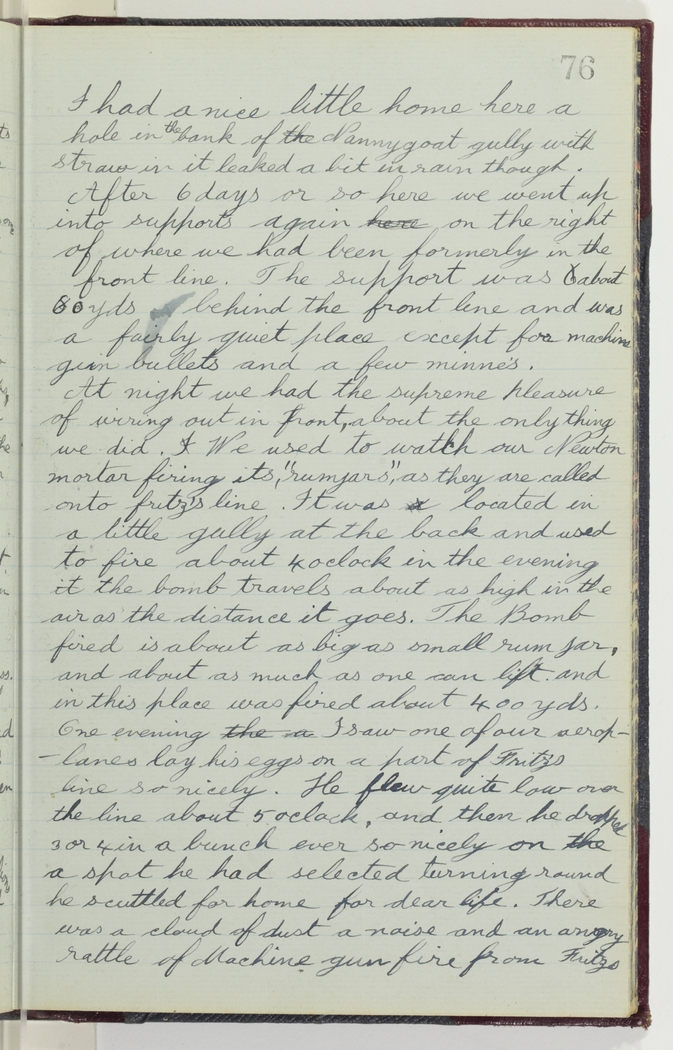 76
I had a nice little home here a
hole in the bank of the Nannygoat gully with
straw in it leaked a bit in rain though.
After 6 days or so here we went up
into supports again here on the right
of where we had been formerly in the
front line. The support was about
80 yds behind the front line and was
a fairly quiet place except for machine
gun bullets and a few minnes.
At night we had the supreme pleasure
of wiring out in front, about the only thing
we did. I We used to watch our Newton
mortar firing its, "rumjars", as they are called
onto fritz's line. It was a located in
a little gully at the back and used
to fire about 4 oclock in the evening
it the bomb travels about as high in the
air as the distance it goes. The Bomb
fired is about as big as small rum jar,
and about as much as one can lift. and
in this place was fired about 400 yds.
One evening the a I saw one of our aerop-
-lanes lay his eggs on a part of Fritzs
line so nicely. He flew quite low over
the line about 5 oclock, and then he dropped
3 or 4 in a bunch ever so nicely on the
a spot he had selected turning round
he scuttled for home for dear life. There
was a cloud of dust a noise and an angry
rattle of Machine gun fire from Fritzs